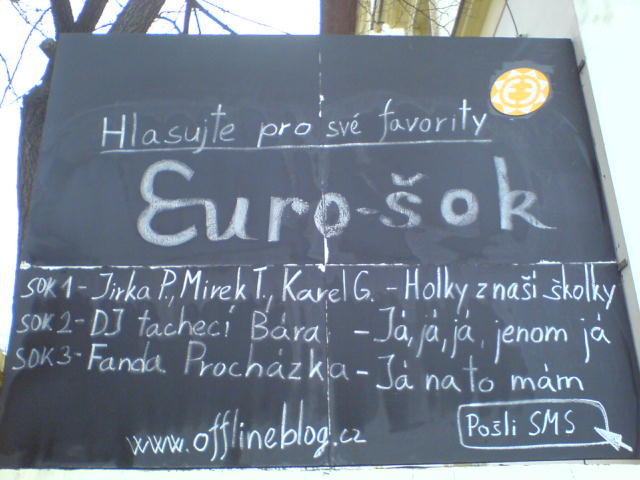 Hlasujte pro své favority
Euro-šok
ŠOK 1 - Jirka P., Mirek T., Karel G. - Holky z naší školky
ŠOK 2 - DJ tachecí Bára - Já, já, já, jenom já
ŠOK 3 - Fanda Procházka - Já na to mám
www.offlineblog.cz
Pošli SMS